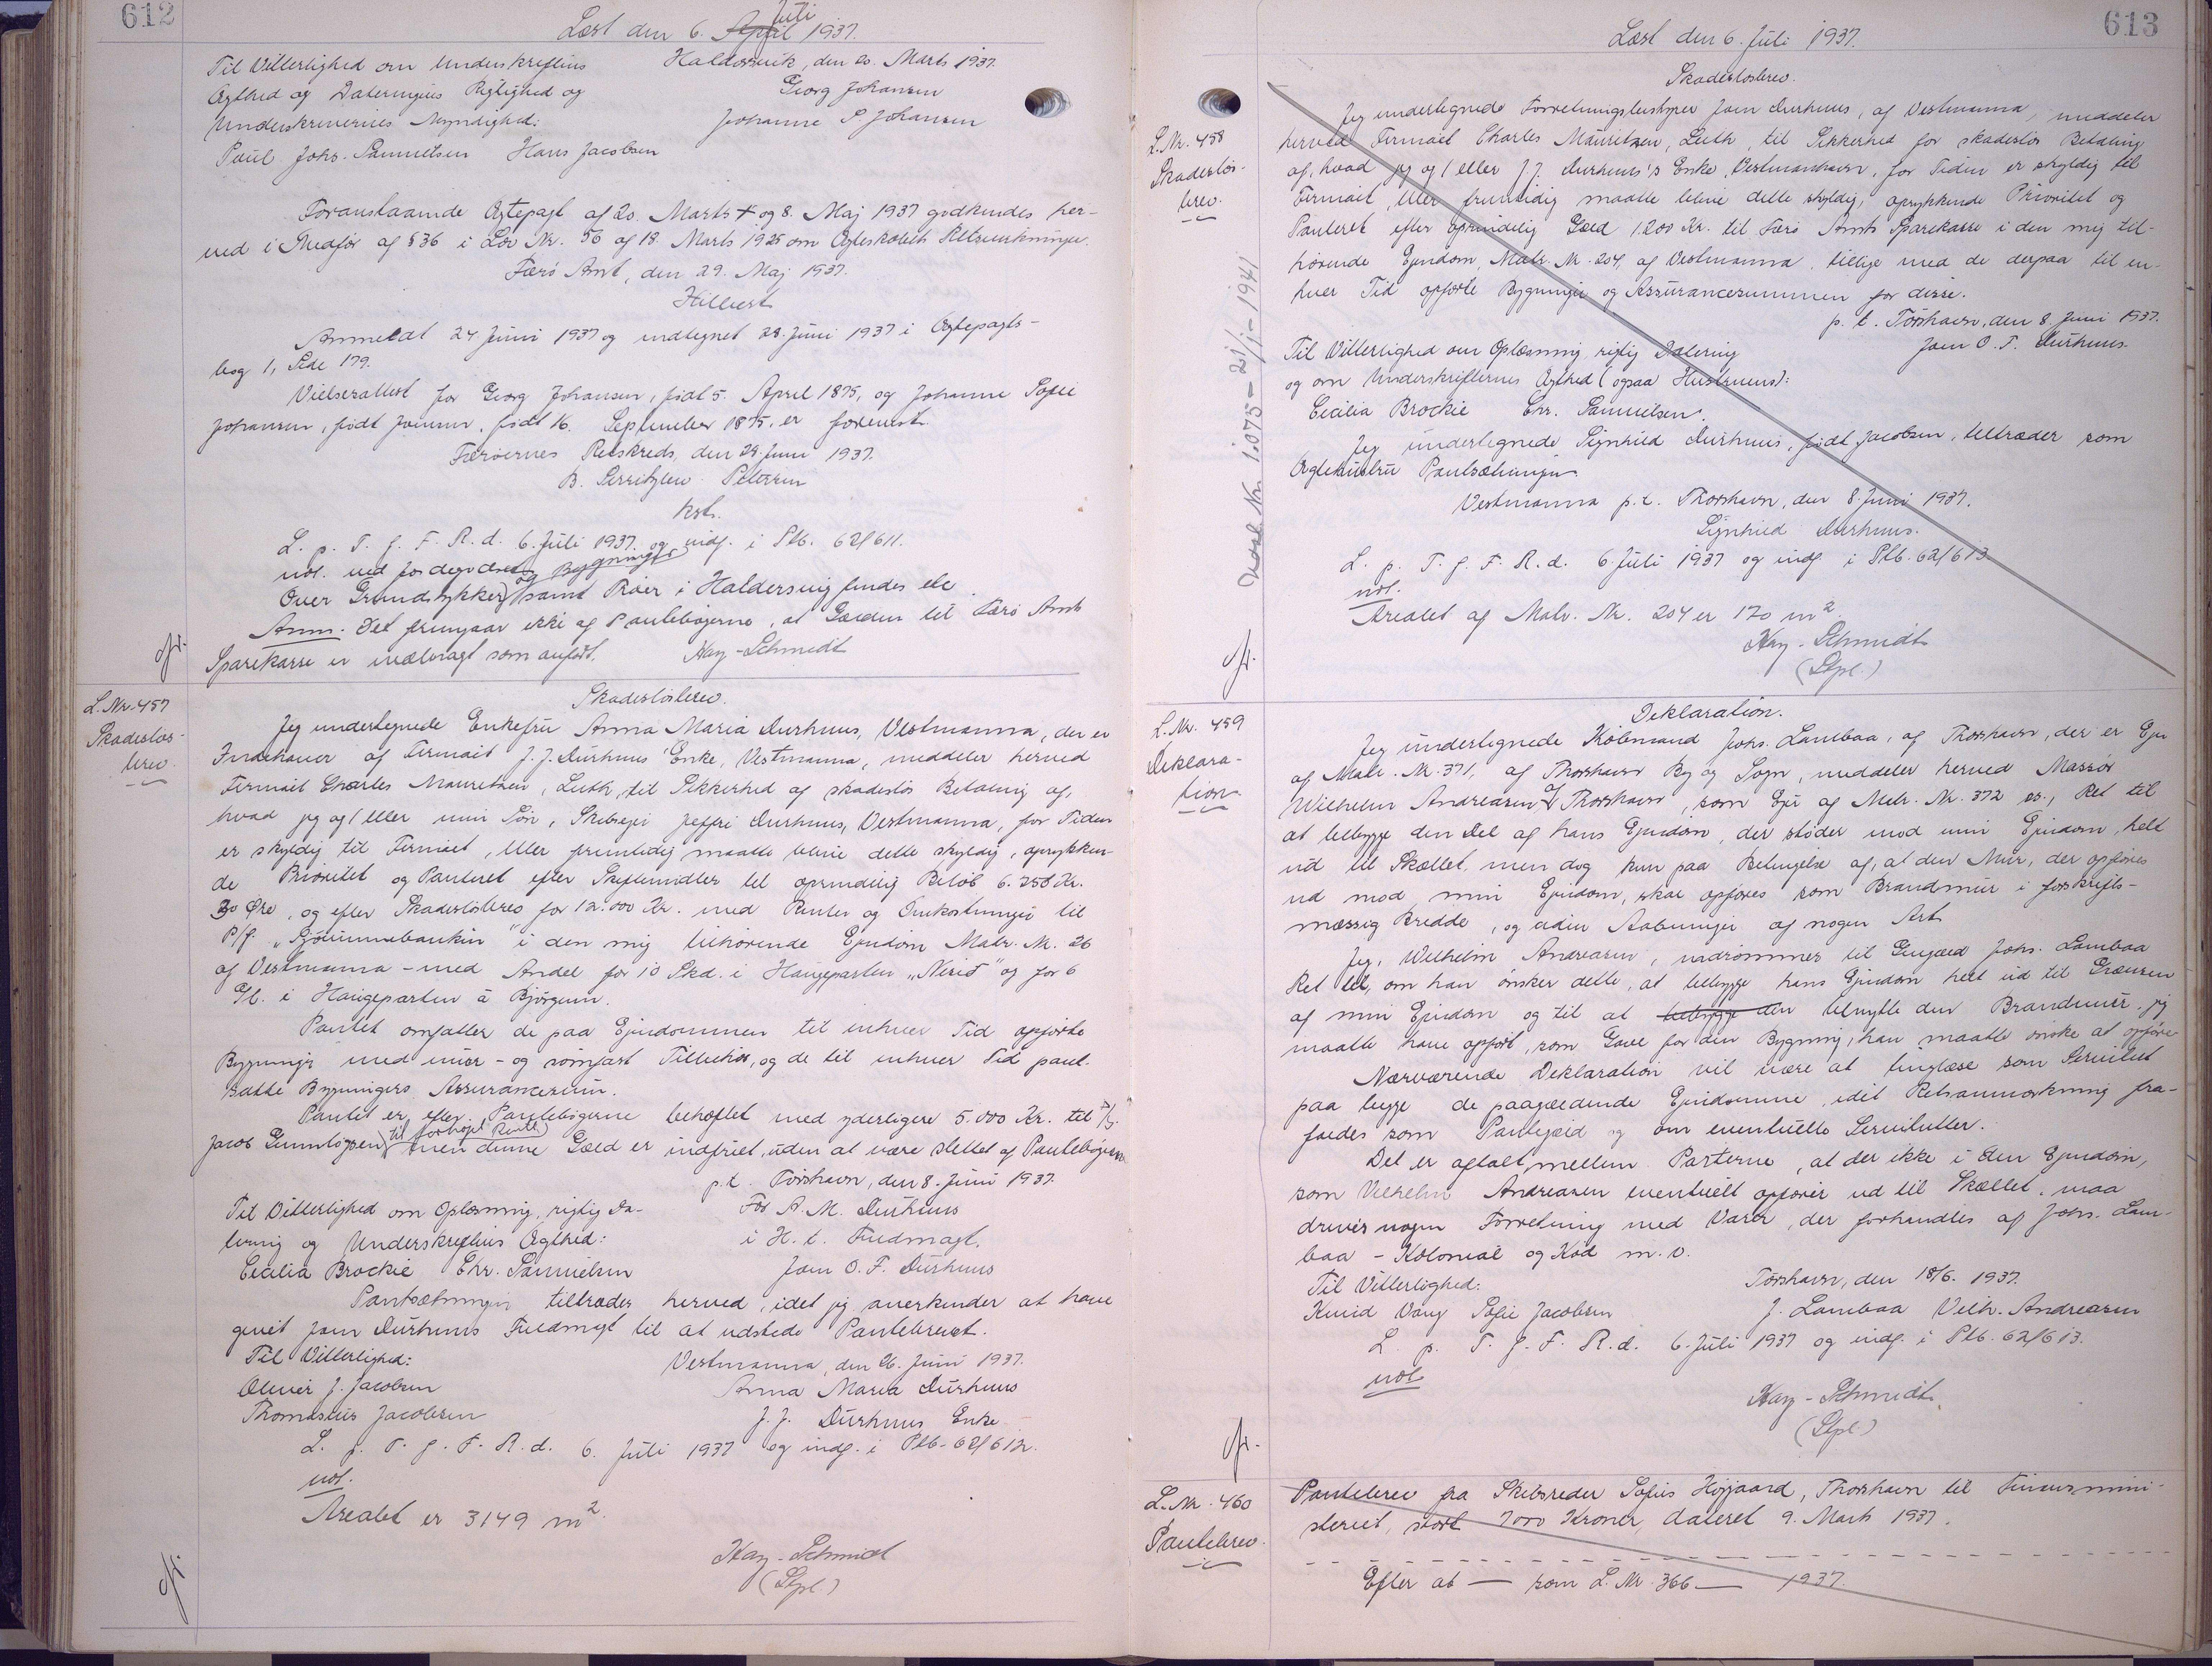 612
Læst den 6. April Juli 1937.
Til Vitterlighed om Underskriftens
Ægthed og Dateringens Rigtighed og
Underskrivernes Myndighed:
Paul Johs. Samuelsen Hans Jacobsen
Haldersvik, den 20. Marts 1937.
Georg Johansen
Johanne S. Johansen
Foranstaaende Ægtepagt af 20. Marts + og 8. Maj 1937 godkendes her-
ved i Medfør af § 36 i Lov Nr. 56 af 18. Marts 1925 om Ægteskabets Retsvirkninger.
Færø Amt, den 29. Maj 1937.
Hilbert
Anmeldt 24 Juni 1937 og indtegnet 28. Juni 1937 i Ægtepagts-
bog 1, Side 179.
Vielsesattest for Georg Johansen, født 5. April 1875, og Johanne Sofie
Johansen, født Joensen, født 16. September 1875, er forevist.
Færøernes Retskreds, den 29. Juni 1937.
B. Serritzlew Petersen
kst.
L. p. T. f. F. R. d. 6. Juli 1937. og indf. i Ptb. 62/611.
udl. ved Jordegodset og Bygninger
Over Grundstykker samt Tróer i Haldersvig findes ele
Anm. Det fremgaar ikke af Pantebøgerne, at Gælden til Færø Amts
Sparekasse er nedbragt som anført.
Kay-Schmidt
L. Nr. 457
Skadesløs-
brev.
Skadesløsbrev.
Jeg undertegnede Enkefru Anna Maria Durhuus, Vestmanna, der er
Indehaver af Firmait J. J. Durhuus' Enke, Vestmanna, meddeler herved
Firmait Charles Mauretzen, Leith, til Sikkerhed af skadesløs Betaling af,
hvad jeg og/eller min Søn, Skibsejer Jeffri Durhuus, Vestmanna, for Tiden
er skyldig til Firmaet, eller fremtidig maatte blive dette skyldig, oprykken-
de Prioritet og Panteret efter Skiftemidler til oprindelig Beløb 6.258 Kr.
30 Øre, og efter Skadesløsbrev for 12.000 Kr. med Renter og Omkostninger til
P/f. "Sjóvinnubankin" i den mig tilhørende Ejendom Matr. Nr. 26
af Vestmanna - med Andel for 10 Skd. i Haugeparten "Nerið" og for 6
Gl. i Haugeparten á Bjørgum.
Pantet omfatter de paa Ejendommen til enhver Tid opførte
Bygninger med mur- og sømfast Tilbehør, og de til enhver Tid pant-
satte Bygningers Assurancesum.
Pantet er, efter Pantebøgerne behæftet med yderligere 5.000 Kr. til P/f.
Jacob Gunnløgsen til forhøjet Rente men denne Gæld er indfriet, uden at være slettet af Pantebøgerne
p.t. Tórshavn, den 8. Juni 1937.
Til Vitterlighed om Oplæsning, rigtig Da-
tering og Underskriftens Ægthed:
Cecilia Brockie Chr. Samuelsen
For A. M. Durhuus
i H. t. Fuldmagt,
Joen O. F. Durhuus
Pantsætningen tiltrædes herved, idet jeg anerkender at have
givet Joen Durhuus Fuldmagt til at udstede Pantebrevet.
Til Vitterlighed:
Oliver J. Jacobsen
Thomasius Jacobsen
Vestmanna, den 26. Juni 1937.
Anna Maria Durhuus
J. J. Durhuus Enke
L. p. T. f. F. R. d. 6. Juli 1937 og indf. i Ptb. 62/612.
udl.
Arealet er 3149 m2.
Kay-Schmidt
(Stpl.)
613
Læst den 6. Juli 1937.
L. Nr. 458
Skadesløs-
brev.
Skadesløsbrev.
Jeg undertegnede Forretningsbestyrer Joen Durhuus, af Vestmanna, meddeler
herved Firmaet Charles Mauritzen, Leith, til Sikkerhed for skadesløs Betaling
af, hvad jeg og/eller J. J. Durhuus's Enke, Vestmanhavn, for Tiden er skyldig til
Firmaet, eller fremtidig maatte blive dette skyldig, oprykkende Prioritet og
Panteret efter oprindelig Gæld 1200 Kr. til Færø Amts Sparekasse i den mig til-
hørende Ejendom, Matr. Nr. 204, af Vestmanna, tillige med de derpaa til en-
hver Tid opførte Bygninger og Assurancesummen for disse.
p. t. Tórshavn, den 8. Juni 1937.
Joen O. F. Durhuus
Til Vitterlighed om Oplæsning, rigtig Datering
og om Underskrifternes Ægthed (ogsaa Hustruens):
Cecilia Brockie Chr. Samuelsen.
Jeg undertegnede Signhild Durhuus, født Jacobsen, tiltræder som
Ægtehustru Pantsætningen
Vestmanna p.t. Thorshavn, den 8. Juni 1937.
Signhild Durhuus.
L. p. T. f. F. R. d. 6. Juli 1937 og indf. i Ptb. 62/613.
udl.
Arealet af Matr. Nr. 204 er 170 m2
Kay-Schmidt
(Stpl.)
L. Nr. 459
Deklara-
tion
Deklaration.
Jeg undertegnede Købmand Johs. Lamhaa, af Thorshavn, der er Ejer
af Matr. Nr. 371, af Thorshavn By og Sogn, meddeler herved Massør
Wilhelm Andreasen af Thorshavn, som Ejer af Matr. Nr. 372 es., Ret til
at bebygge den Del af hans Ejendom, der støder mod min Ejendom, helt
ud til Skællet, men dog kun paa Betingelse af, at den Mur, der opføres
ud mod min Ejendom, skal opføres som Brandmur i forskrifts-
mæssig Bredde, og uden Aabninger af nogen Art.
Jeg, Wilhelm Andreasen, indrømmer til Gengæld Johs. Lamhaa
Ret til, om han ønsker dette, at bebygge hans Ejendom helt ud til Grænsen
af min Ejendom og til at bebygge den benytte den Brandmur, jeg
maatte have opført, som Gavl for den Bygning, han maatte ønske at opføre
Nærværende Deklaration vil være at tinglæse som Servitut
paa begge de paagældende Ejendomme, idet Retsanmærkning fra-
faldes som Pantegæld og om eventuelle Servitutter.
Det er aftalt mellem Parterne, at der ikke i den Ejendom,
som Vilhelm Andreasen eventuelt opfører ud til Skællet, maa
drives nogen Forretning med Varer, der forhandles af Johs. Lam-
haa - Kolonial og Kød m. v.
Til Vitterlighed:
Knud Vang Sofie Jacobsen
Tórshavn, den 18/6. 1937.
J. Lamhaa Vilh. Andreasen
L. p. T. f. F. R. d. 6. Juli 1937 og indf. i Ptb. 62/613.
udl.
Kay-Schmidt,
(Stpl.)
L. Nr. 460
Pantebrev.
Pantebrev fra Skibsreder Sofus Højgaard, Thorshavn til Finansmini-
steriet, stort 7000 Kroner, dateret 9. Marts 1937.
Efter at — som L. Nr. 366 — 1937.